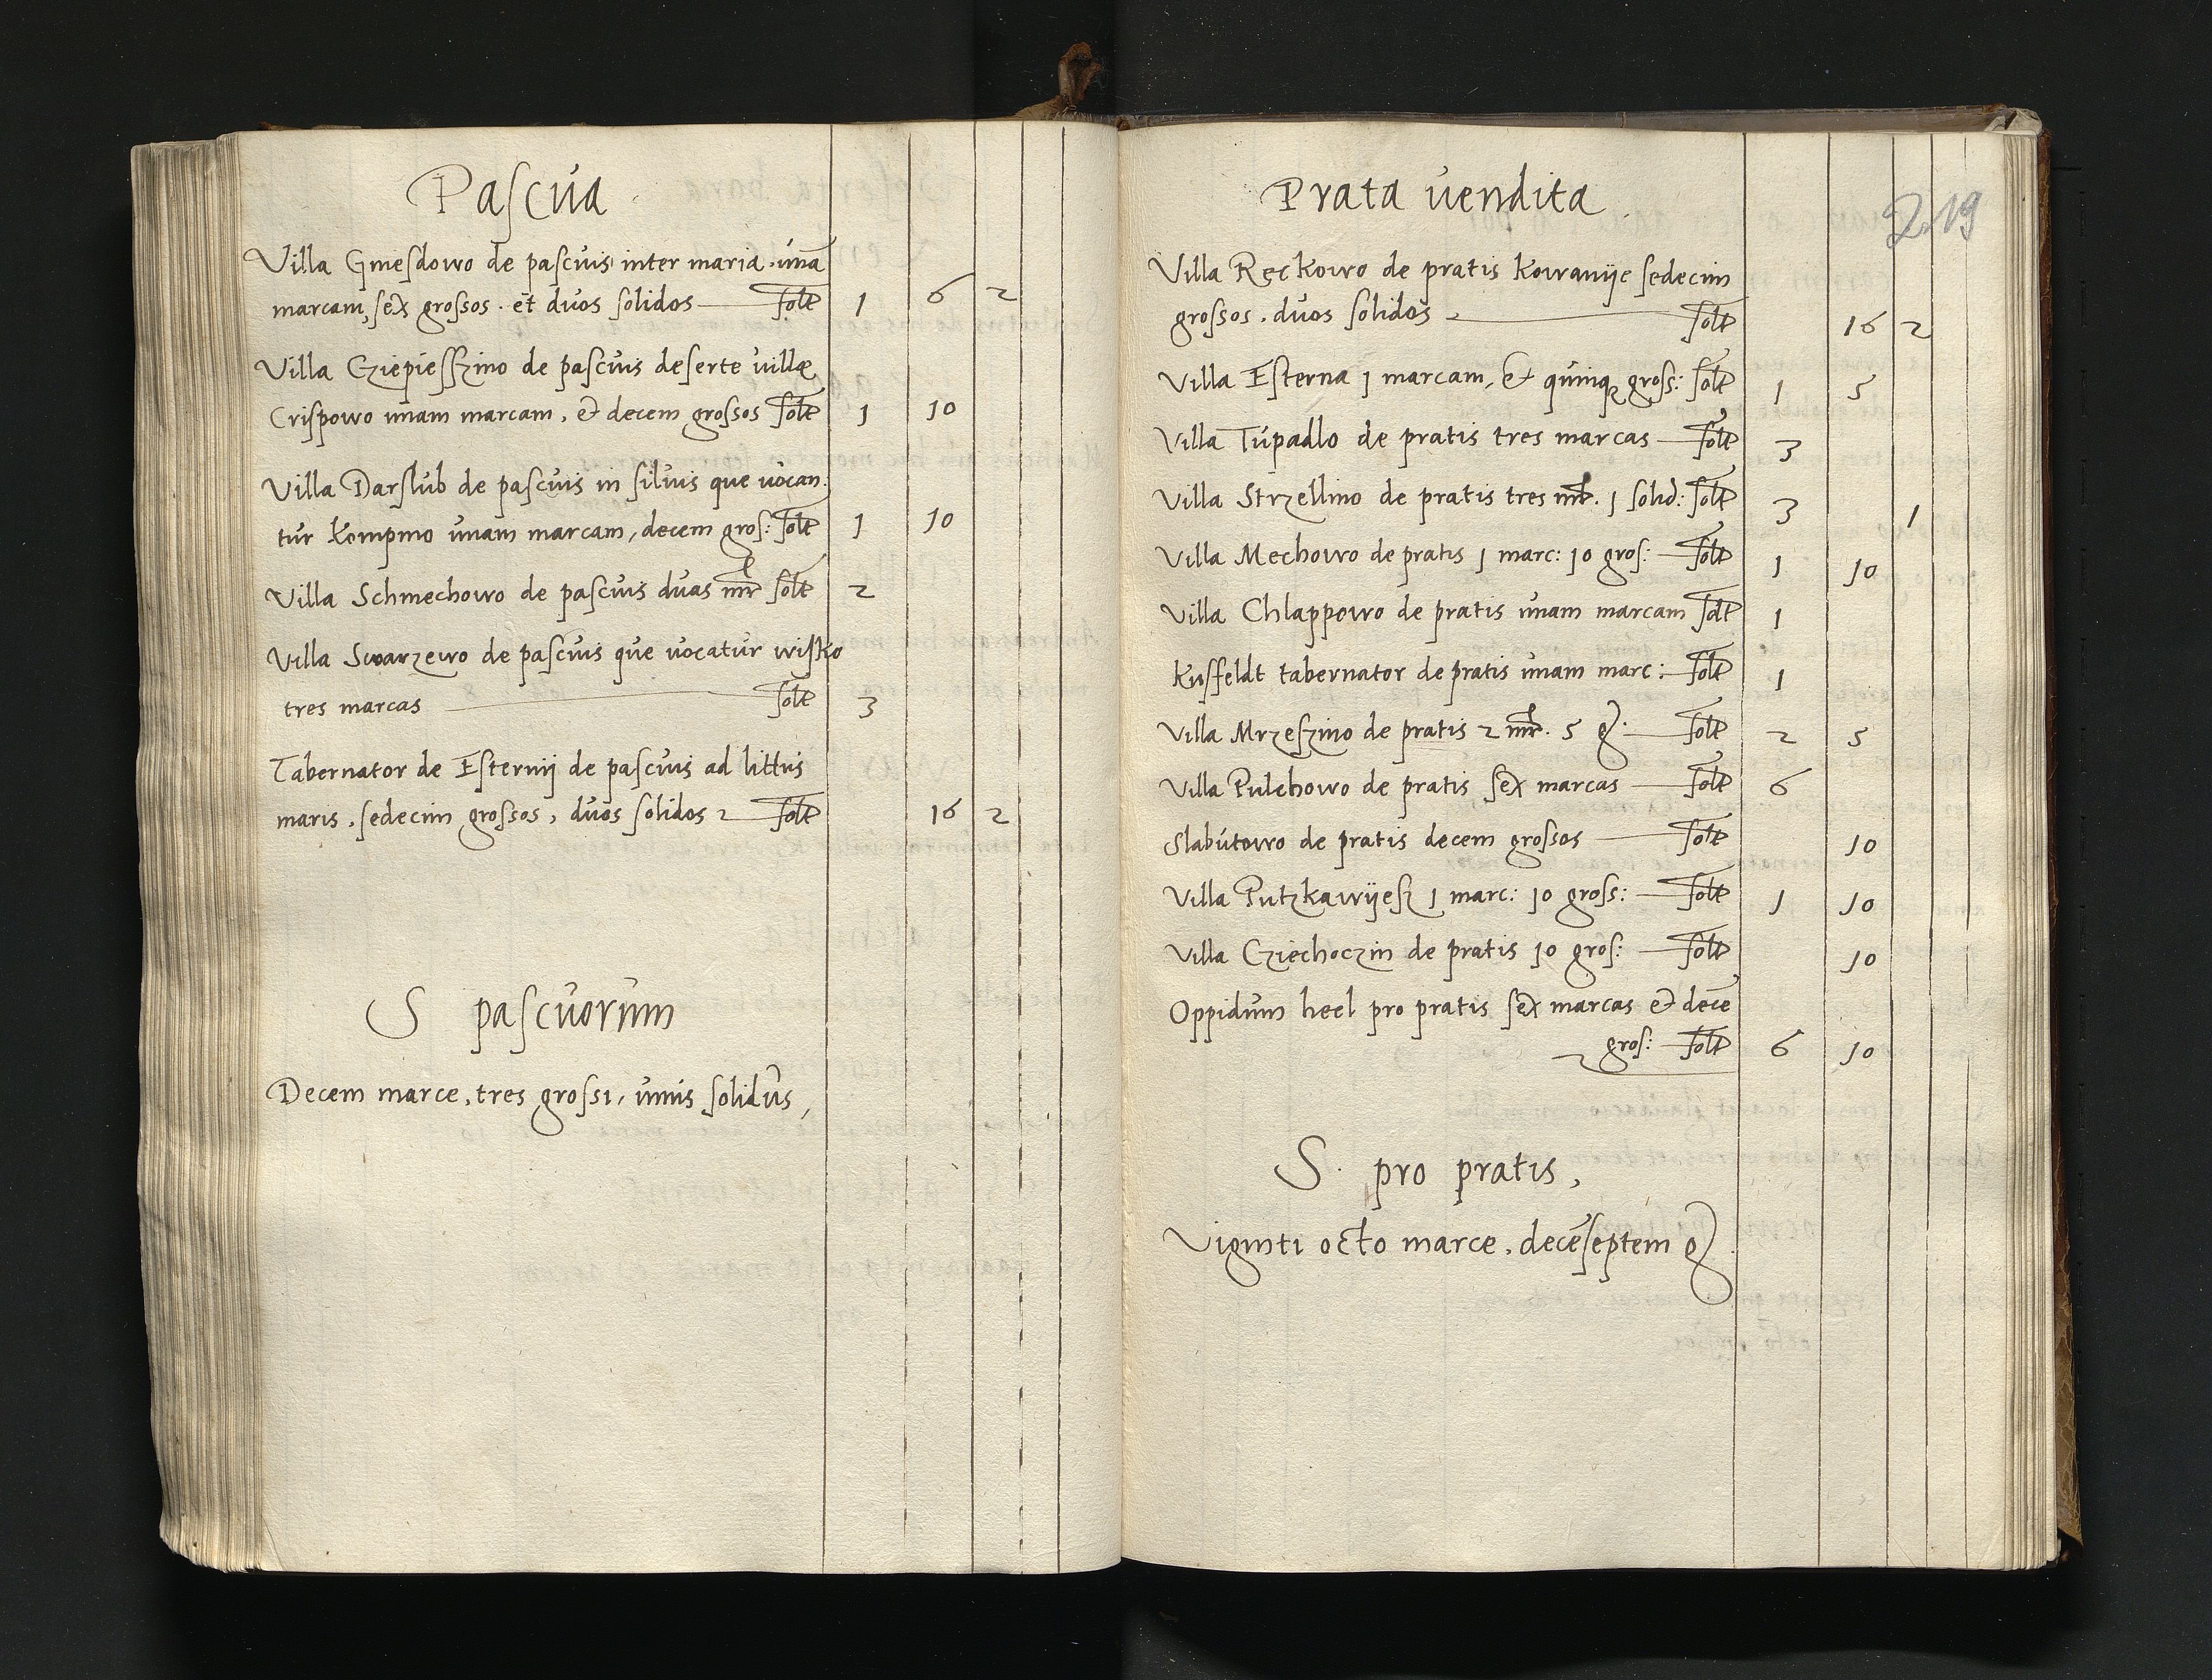 Pascua
Villa Gnesdowo de pascuis inter maria unã
marcam, sex grossos. et duos solidos — solt 1 6 2
Villa Cziepieszino de pascuis deserte villæ
Crispowo unam marcam, et decem grossos solt 1 10
Villa Darslub de pascuis in silvis que vocan:
tur Kompino unam marcam, decem gros: solt 1 10
Villa Schmechowo de pascuis duas mr solt 2
Villa Swarzewo de pascuis que vocatur wisko
tres marcas — solt 3
Tabernator de Esternij de pascuis ad littus
maris, sedecim grossos, duos solidos solt 16 2
S pascuorum
Decem marce, tres grossi, unus solidus,
Prata vendita
219
Villa Reckowo de pratis Kowanije sedecim
grossos. duos solidos — solt 16 2
Villa Esterna 1 marcam, et quinq gross: solt 1 5
Villa Tupadlo de pratis tres marcas — solt 3
Villa Strzellino de pratis tres mr. 1 solid: solt 3 1
Villa Mechowo de pratis 1 marc: 10 gros: — solt 1 10
Villa Chlappowo de pratis unam marcam solt 1
Kusfeldt tabernator de pratis unam marc: solt 1
Villa Mrzeszino de pratis 2 mr. 5 g. — solt 2 5
Villa Pulchowo de pratis sex marcas — solt 6
Slabutowo de pratis decem grossos — solt 10
Villa Putzkawijesz 1 marc: 10 gross: — solt 1 10
Villa Cziechoczin de pratis 10 gros: — solt 10
Oppidum heel pro pratis sex marcas et decẽ
gros: — solt 6 10
S. pro pratis,
Viginti octo marce, decẽseptem g